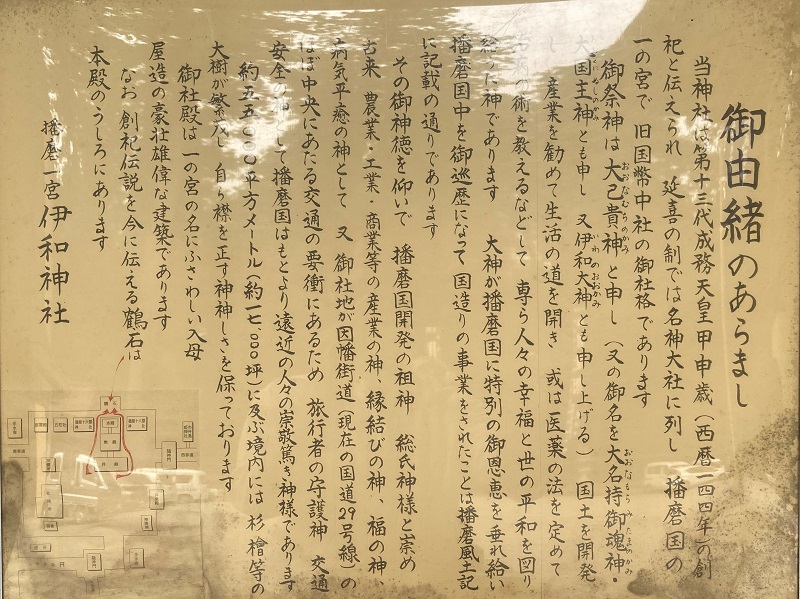 御由緒のあらまし
当神社は第十三代成務天皇甲申歳(西暦一四四年)の創
祀と伝えられ 延喜の制では名神大社に列し 播磨国の
一の宮で旧国幣中社の御社格であります
御祭神は大己貴神と申し(又の御名を大名持御魂神・
おおなむちのかみ
おおなもち みたまのかみ
大国主神とも申し 又伊和大神とも申し上げる) 国土を開発
いわのおおかみ
し 産業を勧めて生活の道を開き 或は医薬の法を定めて
の術を教えるなどして 専ら人々の幸福と世の平和を図り
給った神であります 大神が播磨国に特別の御恩恵を垂れ給い
播磨国中を御巡歴になって国造りの事業をされたことは播磨風土記
に記載の通りであります
その御神徳を仰いで 播磨国開発の祖神 総氏神様と崇め
古来 農業・工業・商業等の産業の神、縁結びの神、福の神、
病気平癒の神として 又 御社地が因幡街道(現在の国道29号線)の
ほぼ中央にあたる交通の要衝にあるため 旅行者の守護神 交通
安全の神として播磨国はもとより遠近の人々の崇敬篤き神様であります
約五五〇〇〇平方メートル(約一七〇〇〇坪)に及ぶ境内には 杉 檜等の
大樹が繁茂し 自ら襟を正す神神しさを保っております
御社殿は一の宮の名にふさわしい入母
屋造の豪壮雄偉な建築であります
なお 創祀伝説を今に伝える鶴石は
本殿のうしろにあります
播磨一宮 伊和神社